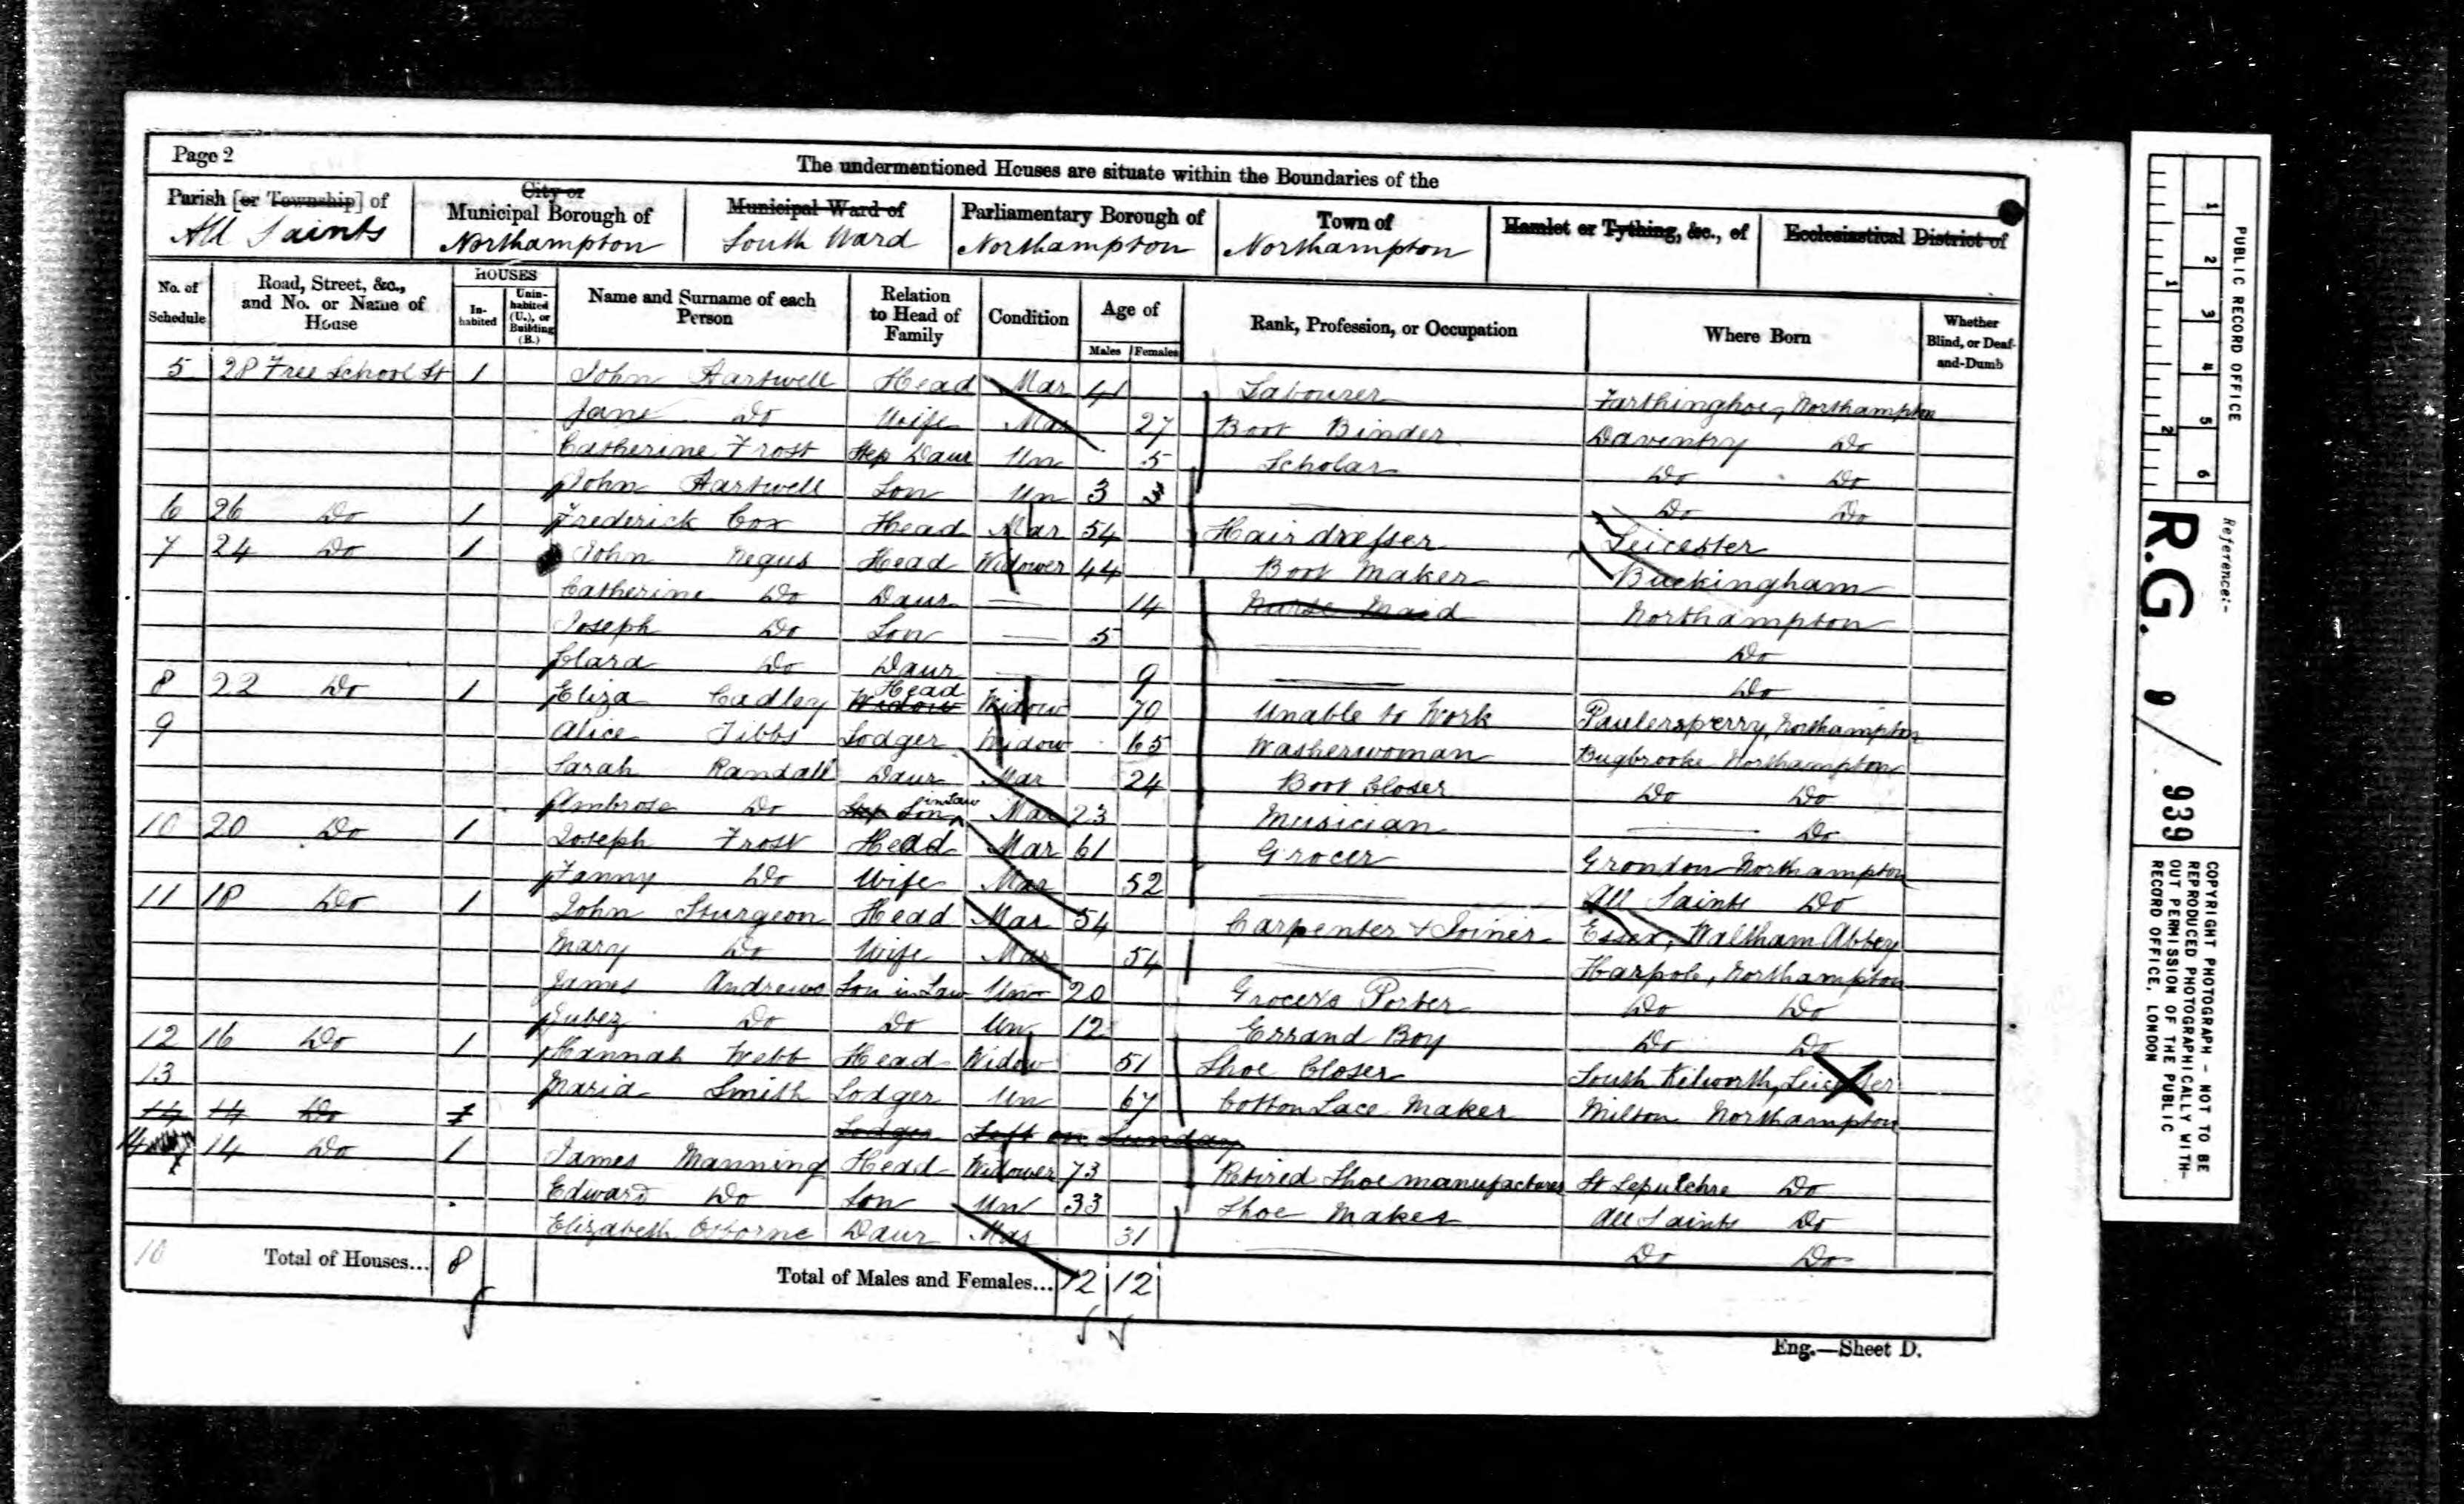 Page 2
The undermentioned Houses are situate within the Boundaries of the
Parish [or Township] of All Saints
City or Municipal Borough of Northampton
Municipal Ward of South Ward
Parliamentary Borough of Northampton
Town of Northampton
Hamlet or Tything, &c., of
Ecclesiastical District of
No. of Schedule
Road, Street, &c., and No. or Name of House
HOUSES
In-habited
Unin-habited (U.), or Building (B.)
Name and Surname of each Person
Relation to Head of Family
Condition
Age of
Males Females
Rank, Profession, or Occupation
Where Born
Whether Blind, or Deaf-and-Dumb
5 28 Free School St 1 John Hartwell Head Mar 41 Labourer Farthinghoe, Northampton
Jane Do Wife Mar 27 Boot Binder Daventry Do
Catherine Frost Step Daur Un 5 Scholar Do Do
John Hartwell Son Un 3 Do Do
6 26 Do 1 Frederick Cox Head Mar 54 Hairdresser Leicester
7 24 Do 1 John Negus Head Widower 44 Boot Maker Buckingham
Catherine Do Daur 14 Nurse Maid Northampton
Joseph Do Son 5 Do
Clara Do Daur 9 Do
8 22 Do 1 Eliza Cadley Widow Head Widow 70 Unable to Work Paulersperry, Northampton
9 Alice Tibbs Lodger Widow 65 Washerwoman Bugbrooke Northampton
Sarah Randall Daur Mar 24 Boot Closer Do Do
Ambrose Do Step Son in Law Mar 23 Musician Do
10 20 Do 1 Joseph Frost Head Mar 61 Grocer Grondon Northampton
Fanny Do Wife Mar 52 All Saints Do
11 18 Do 1 John Sturgeon Head Mar 54 Carpenter & Joiner Essex, Waltham Abbey
Mary Do Wife Mar 54 Harpole, Northampton
James Andrews Son in Law Un 20 Grocer's Porter Do Do
Jubez Do Do Un 12 Errand Boy Do Do
12 16 Do 1 Hannah Webb Head Widow 51 Shoe Closer South Kilworth, Leicester
13 Maria Smith Lodger Un 67 Cotton Lace Maker Milton Northampton
14 14 Do 1 Lodger Left on Sunday
14 14 Do 1 James Manning Head Widower 73 Retired Shoe manufacturer St Sepulchre Do
Edward Do Son Un 33 Shoe Maker All Saints Do
Elizabeth Osborne Daur Mar 31 Do Do
10 Total of Houses... 8 Total of Males and Females... 12 12
Eng.—Sheet D.
PUBLIC RECORD OFFICE
1 2 3 4 5 6
1 2
Reference:-
R.G. 9/939
COPYRIGHT PHOTOGRAPH - NOT TO BE
REPRODUCED PHOTOGRAPHICALLY WITH-
OUT PERMISSION OF THE PUBLIC
RECORD OFFICE, LONDON